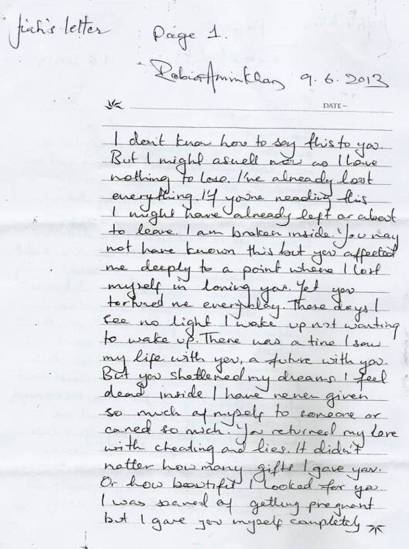 Jiah's letter
Page 1.
Rabia Amin Khan 9.6.2013
DATE-
I don't know how to say this to you.
But I might aswell now as I have
nothing to lose. I've already lost
everything. If you're reading this
I might have already left or about
to leave. I am broken inside. You may
not have known this but you affected
me deeply to a point where I lost
myself in loving you. Yet you
tortured me everyday. These days I
see no light I wake up not wanting
to wake up. There was a time I saw
my life with you, a future with you.
But you shattered my dreams. I feel
dead inside I have never given
so much of myself to someone or
cared so much. You returned my love
with cheating and lies. It didn't
matter how many gifts I gave you.
Or how beautiful I looked for you.
I was scared of getting pregnant
but I gave you myself completely